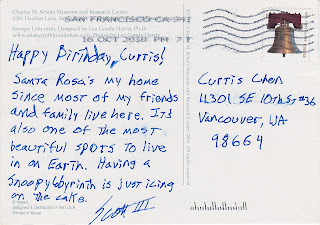 Charles M. Schulz Museum and Research Center
2301 Hardies Lane,
SAN FRANCISCO CA 941
Snoopy Labyrinth, Designed by Lea Goode-Harris, Ph.D.
16 OCT 2010 PM 7 T
Happy Birthday, Curtis!
Santa Rosa's my home
since most of my friends
and family live here. It's
also one of the most
beautiful spots to live
in on Earth. Having a
Snoopy labyrinth is just icing
on the cake.
Scott III
Curtis Chen
11301 SE 10th St #36
Vancouver, WA
98664
Designed & Distributed in the U.S.A.
Printed in Korea